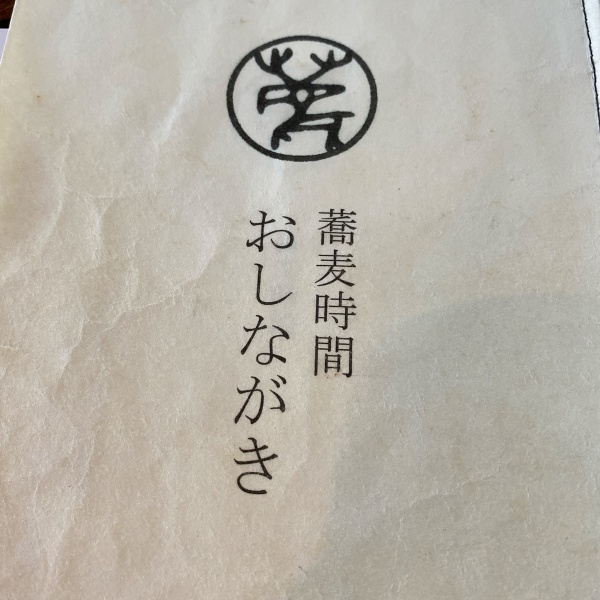 蕎麦時間
おしながき